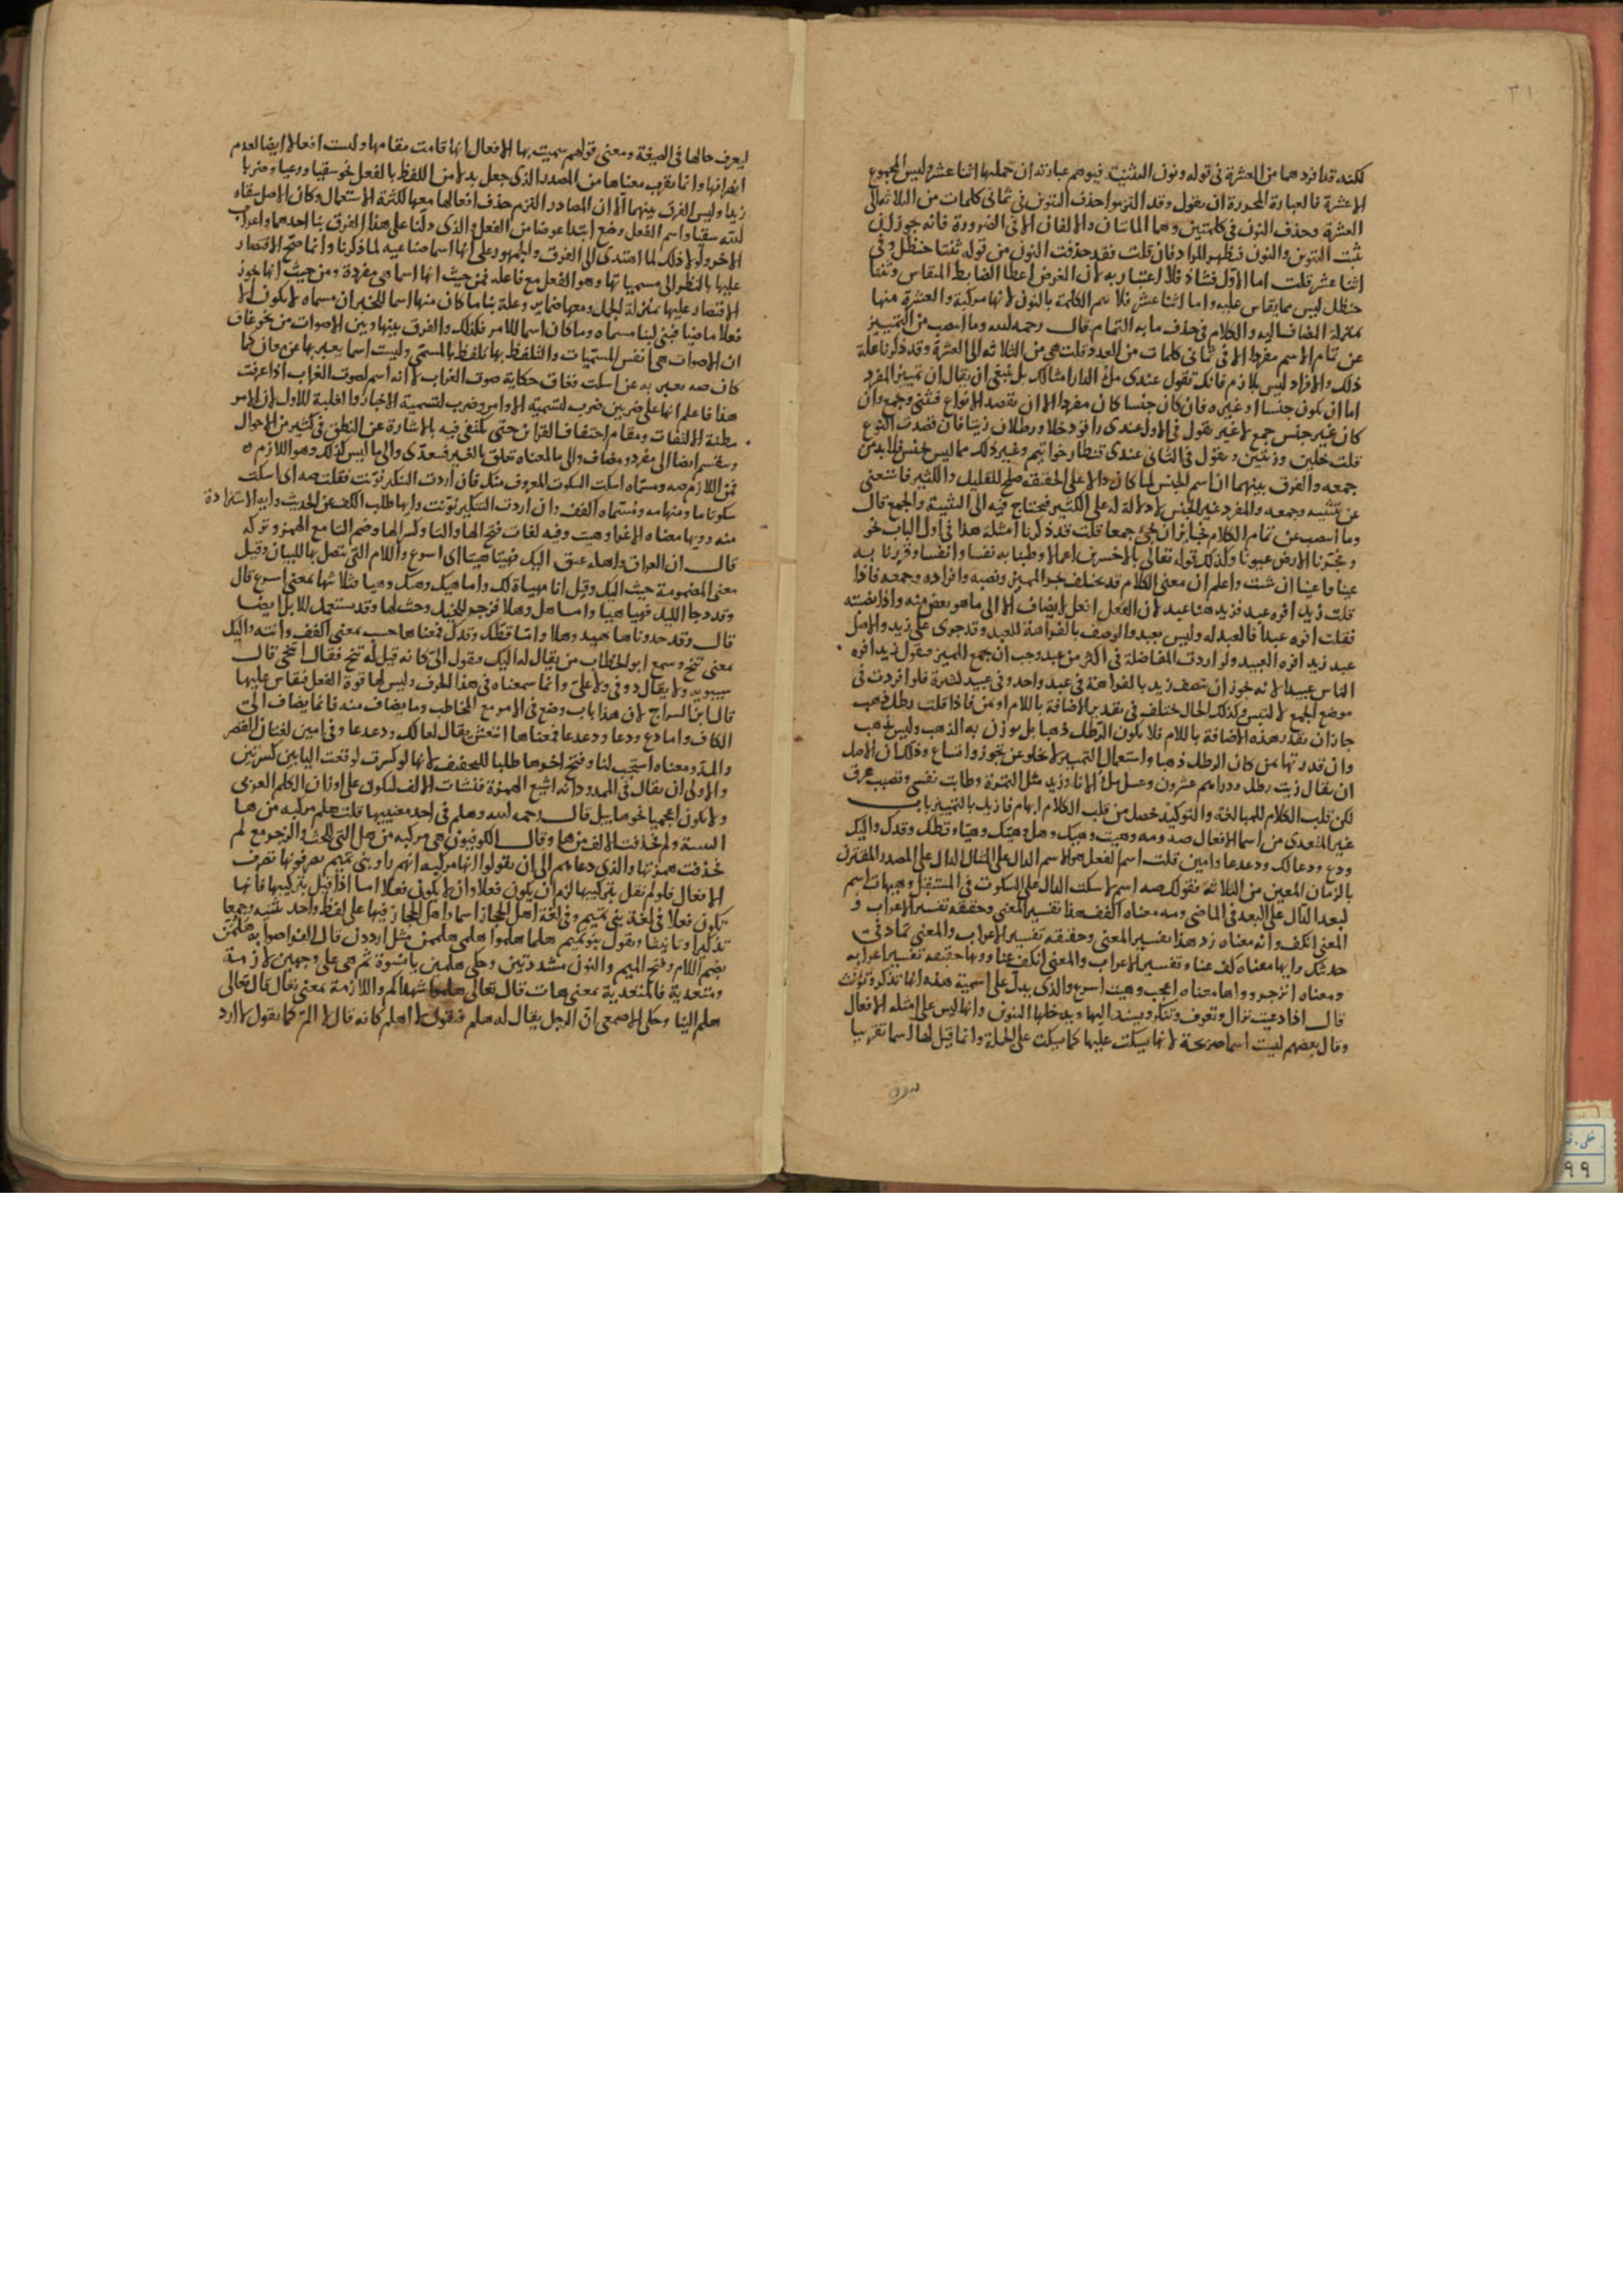 ٣١
لكنه قد افردهما من العشرة فى قوله ونون التثنية فيوهم عبارته ان جملها اثنا عشر وليس المجموع
الا عشرة فالعبارة المحررة ان يقول وقد التزموا حذف التنوين فى ثمانى كلمات من الثلاثة الى
العشرة وحذف النون فى كلمتين وهما المائتان والالفان الا فى الضرورة فانه جوز ان
تثبت التنوين والنون فيظهر المراد فان قلت فقد حذفت النون من قوله ثنتا حنظل وفى
اثنا عشر قلت اما الاول فشاذ فلا اعتبار به لان الغرض اعطا الضابط المقاس وثنتا
حنظل ليس مما يقاس عليه واما اثنا عشر فلا تتم الكلمة بالنون لانها مركبة والعشرة منها
بمنزلة المضاف اليه والكلام فى حذف ما به التمام قال رحمه الله وما انتصب من التمييز
عن تمام الاسم مفرد الا فى ثمانى كلمات من العدد قلت هى من الثلاثة الى العشرة وقد ذكرنا علة
ذلك والافراد ليس بلازم فانك تقول عندى ملء الدار امثالك بل ينبغى ان يقال ان تمييز المفرد
اما ان يكون جنسا او غيره فان كان جنسا كان مفردا الا ان يقصد الانواع فتثنى وجمع وان
كان غير جنس جمع لا غير تقول فى الاول عندى راقود خلا ورطلان زيتا فان قصدت النوع
قلت خلين وزيتين وتقول فى الثانى عندى قنطار خواتيم وغير ذلك مما ليس بجنس فلا بد من
جمعه والفرق بينهما ان اسم الجنس لما كان دالا على الحقيقة صلح للقليل والكثير فاستغنى
عن تثنيته وجمعه والمفرد غير الجنس لا دلالة له على الكثير فيحتاج فيه الى التثنية والجمع قال
وما انتصب عن تمام الكلام فجايز ان يجئ جمعا قلت قد ذكرنا امثلة هذا فى اول الباب نحو
وفجرنا الارض عيونا وكذلك قوله تعالى بالاخسرين اعمالا وطبنا به نفسا وانفسا وقررنا به
عينا واعينا ان شئت واعلم ان معنى الكلام قد يختلف بجر المميز ونصبه وافراده وجمعه فاذا
قلت زيد افره عبد فزيد هنا عبد لان افعل لا يضاف الا الى ما هو بعض منه واذا نصبته
فقلت افره عبدا فالعبد له وليس بعبد والوصف بالفراهة للعبد وقد جرى على زيد والاصل
عبد زيد افره العبيد ولو اردت المفاضلة فى اكثر من عبد وجب ان يجمع المميز فتقول زيد افره
الناس عبيدا لانه يجوز ان تصف زيد بالفراهة فى عبد واحد وفى عبيد لكثرة فلو افردت فى
موضع الجمع لالتبس وكذلك الحال تختلف فى تقدير الاضافة باللام او من فاذا قلت رطل ذهب
جاز ان تقدر هذه الاضافة باللام فلا يكون الرطل ذهبا بل يوزن به الذهب وليس بذهب
وان قدرتها بمن كان الرطل ذهبا واستعمال التمييز لا يخلو عن تجوز واتساع وذلك ان الاصل
ان يقال زيت رطل ودراهم عشرون وعسل ملء الاناء وزبد مثل التمرة وطابت نفسى وتصبب عرق
لكن قلب الكلام للمبالغة والتوكيد فحصل من قلب الكلام ابهام فازيل بالتمييز باب
غير المتعدى من اسما الافعال صه ومه وهيت وهيك وهل وهيك وهيا وقطك وقدك واليك
ودع ودعا لك ودعدعا وامين قلت اسم الفعل هو الاسم الدال على المثال الدال على المصدر المقترن
بالزمان المعين من الثلاثة فقولك صه اسم لاسكت الدال على السكوت فى المستقبل وهيهات اسم
لبعد الدال على البعد فى الماضى ومه معناه اكفف هذا تفسير المعنى وحقيقة تفسير الاعراب و
المعنى انكف وانه معناه زد هذا تفسير المعنى وحقيقة تفسير الاعراب والمعنى تماد فى
حديثك وايها معناه كف عنا وتفسير الاعراب والمعنى انكف عنا وويها حقيقة تفسير اعرابه
ومعناه انزجر وواها معناه اعجب وهيت اسرع والذى يدل على اسمية هذه انها تذكر وتؤنث
قال اذا دعيت نزال وتعرف وتنكر ويسند اليها ويدخلها التنوين وانها ليس على امثلة الافعال
وقال بعضهم ليست اسما صريحة لانها يسكت عليها كما يسكت على الجملة وانما قيل لها اسما تقريبا
ليعرف حالها فى الصيغة ومعنى قولهم سميت بها الافعال انها قامت مقامها وليست افعالا ايضا لعدم
تصرفها وانما يقرب معناها من المصدر الذى جعل بدلا من اللفظ بالفعل نحو سقيا ورعيا وضربا
زيدا وليس الفرق بينهما الا ان المصادر التزم حذف افعالها معها لكثرة الاستعمال وكان الاصل سقاه
الله سقيا واسم الفعل وضع ابتدا عوضا من الفعل والذى دلنا على هذا الفرق بنا احدهما واعراب
الاخر ولولا ذلك لما اهتدى الى الفرق والجمهور على انها اسما صناعية لما ذكرنا وانما صح الاقتصار
عليها بالنظر الى مسمياتها وهو الفعل مع فاعله فمن حيث انها اسما هى مفردة ومن حيث انها يجوز
الاقتصار عليها بمنزلة الجمل ومعها ضماير وعلة بنا ما كان منها اسما للخبر ان مسماه لا يكون الا
فعلا ماضيا فبنى لبنا مسماه وما كان اسما للامر فكذلك والفرق بينها وبين الاصوات من نحو غاق
ان الاصوات هى انفس المسميات والتلفظ بها تلفظ بالمسمى وليست اسما يعبر بها عن
كان صه يعبر به عن اسكت فغاق حكاية صوت الغراب لا انه اسم لصوت الغراب اذا عرفت
هذا فاعلم انها على ضربين ضرب لتسمية الاوامر وضرب لتسمية الاخبار واغلبية للاول لان الامر
مظنة الالتفات ومقام احتفاف القران حتى يكتفى فيه بالاشارة عن النطق فى كثير من الاحوال
وينقسم ايضا الى مفرد ومضاف والى ما لمعناه تعلق بالغير فيتعدى والى ما ليس كذلك وهو اللازم
فمن اللازم صه ومسماه اسكت السكوت المعروف منك فان اردت التنكير نونت فقلت صه اى اسكت
سكوتا ما ومنها مه ومسماه اكفف وان اردت التنكير نونت وايها طلب الكف عن الحديث وايه الاستزادة
منه وويها معناه الاغرا وهيت وفيه لغات فتح الها والتا وكسر الها وضم التا مع الهمز وتركه
قال ان العراق واهله عنق اليك فهيت هيتا اى اسرع واللام التى تتصل بها للبيان وقيل
معنى المضمومة جيت اليك وقيل انا مهياة لك واما هيك وهيك وهيا فثلاثتها بمعنى اسرع قال
وقد دجا الليل فهيا هيا واما هل وهلا فزجر للخيل وحث لها وقد يستعمل للابل ايضا
قال وقد حدوناها بهيد وهلا واما قطك وقدك فمعناها حسب بمعنى اكفف وانته واليك
بمعنى تنح وسمع ابو الخطاب من يقال له اليك فيقول الى كانه قيل له تنح فقال اتنحى قال
سيبويه ولا يقال دونى ولا على وانما سمعناه فى هذا الحرف وليس لها قوة الفعل فيقاس عليها
قال ابن السراج لان هذا باب وضع فى الامر مع المخاطب وما يضاف منه فانما يضاف الى
الكاف واما دع ودعا ودعدعا فمعناها انتعش يقال لعا لك ودعدعا وفى امين لغتان القصر
والمد ومعناه استجب لنا وفتح اخرها طلبا للتخفيف لانها لو كسرت لوقعت اليا بين كسرتين
والاولى ان يقال فى الممدود انه اشبع الهمزة فنشات الالف ليكون على اوزان الكلم العربى
ولا يكون اعجميا نحو هابيل قال رحمه الله وهلم فى احد معنييها قلت هلم مركبة من ها
التنبيه ولم فحذفت الالف من ها وقال الكوفيون هى مركبة من هل التى للحث والزجر مع ام
فحذفت همزتها والذى دعاهم الى ان يقولوا انها مركبة انهم راوا بنى تميم يصرفونها تصرف
الافعال فلو لم نقل بتركيبها لزم ان يكون فعلا وان لا يكون فعلا اما اذا قيل بتركيبها فانها
تكون فعلا فى لغة بنى تميم وفى لغة اهل الحجاز اسما واهل الحجاز فيها على لفظ واحد تثنية وجمعا
تذكيرا وتانيثا وتقول بنو تميم هلما هلموا هلمى هلممن مثل ارددن قال الفرا صوابه هلمن
بضم اللام وفتح الميم والنون مشددتين وحكى هلمين يا نسوة ثم هى على وجهين لازمة
ومتعدية فالمتعدية بمعنى هات قال تعالى هلم شهداكم واللازمة بمعنى تعال قال تعالى
هلم الينا وحكى الاصمعى ان الرجل يقال له هلم فيقول لا اهلم كانه قال لا المّ كما يقول لا ارد
٩٩